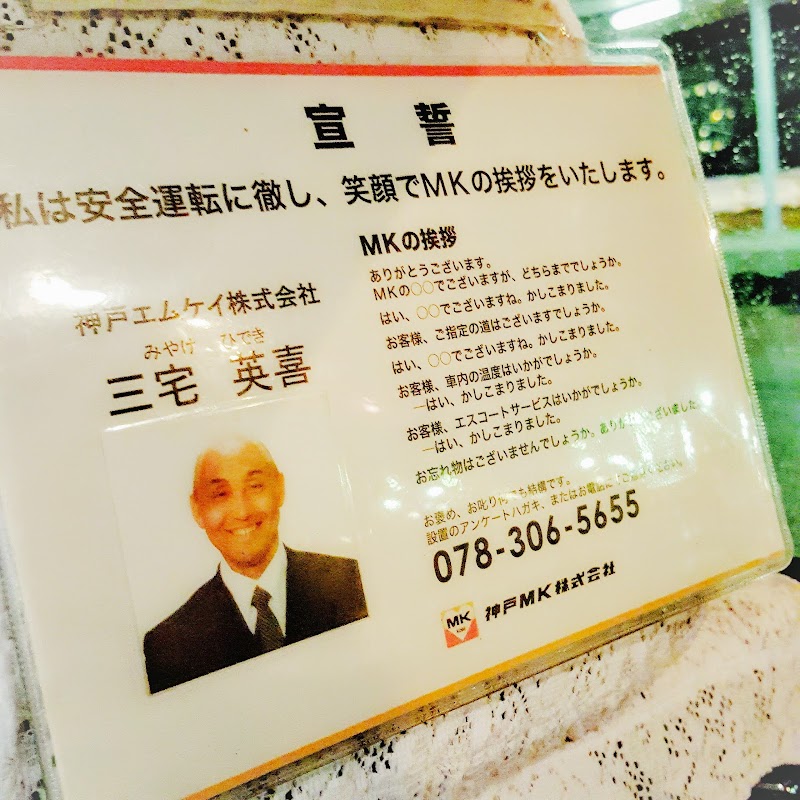 宣誓
私は安全運転に徹し、笑顔でMKの挨拶をいたします。
神戸エムケイ株式会社
みやけ ひでき
三宅 英喜
MKの挨拶
ありがとうございます。
MKの○○でございますが、どちらまででしょうか。
はい、○○でございますね。かしこまりました。
お客様、ご指定の道はございますでしょうか。
はい、○○でございますね。かしこまりました。
お客様、車内の温度はいかがでしょうか。
―はい、かしこまりました。
お客様、エスコートサービスはいかがでしょうか。
―はい、かしこまりました。
お忘れ物はございませんでしょうか。ありがとうございました。
お褒め、お叱り何でも結構です。
設置のアンケートハガキ、またはお電話に
078-306-5655
MK
神戸MK株式会社